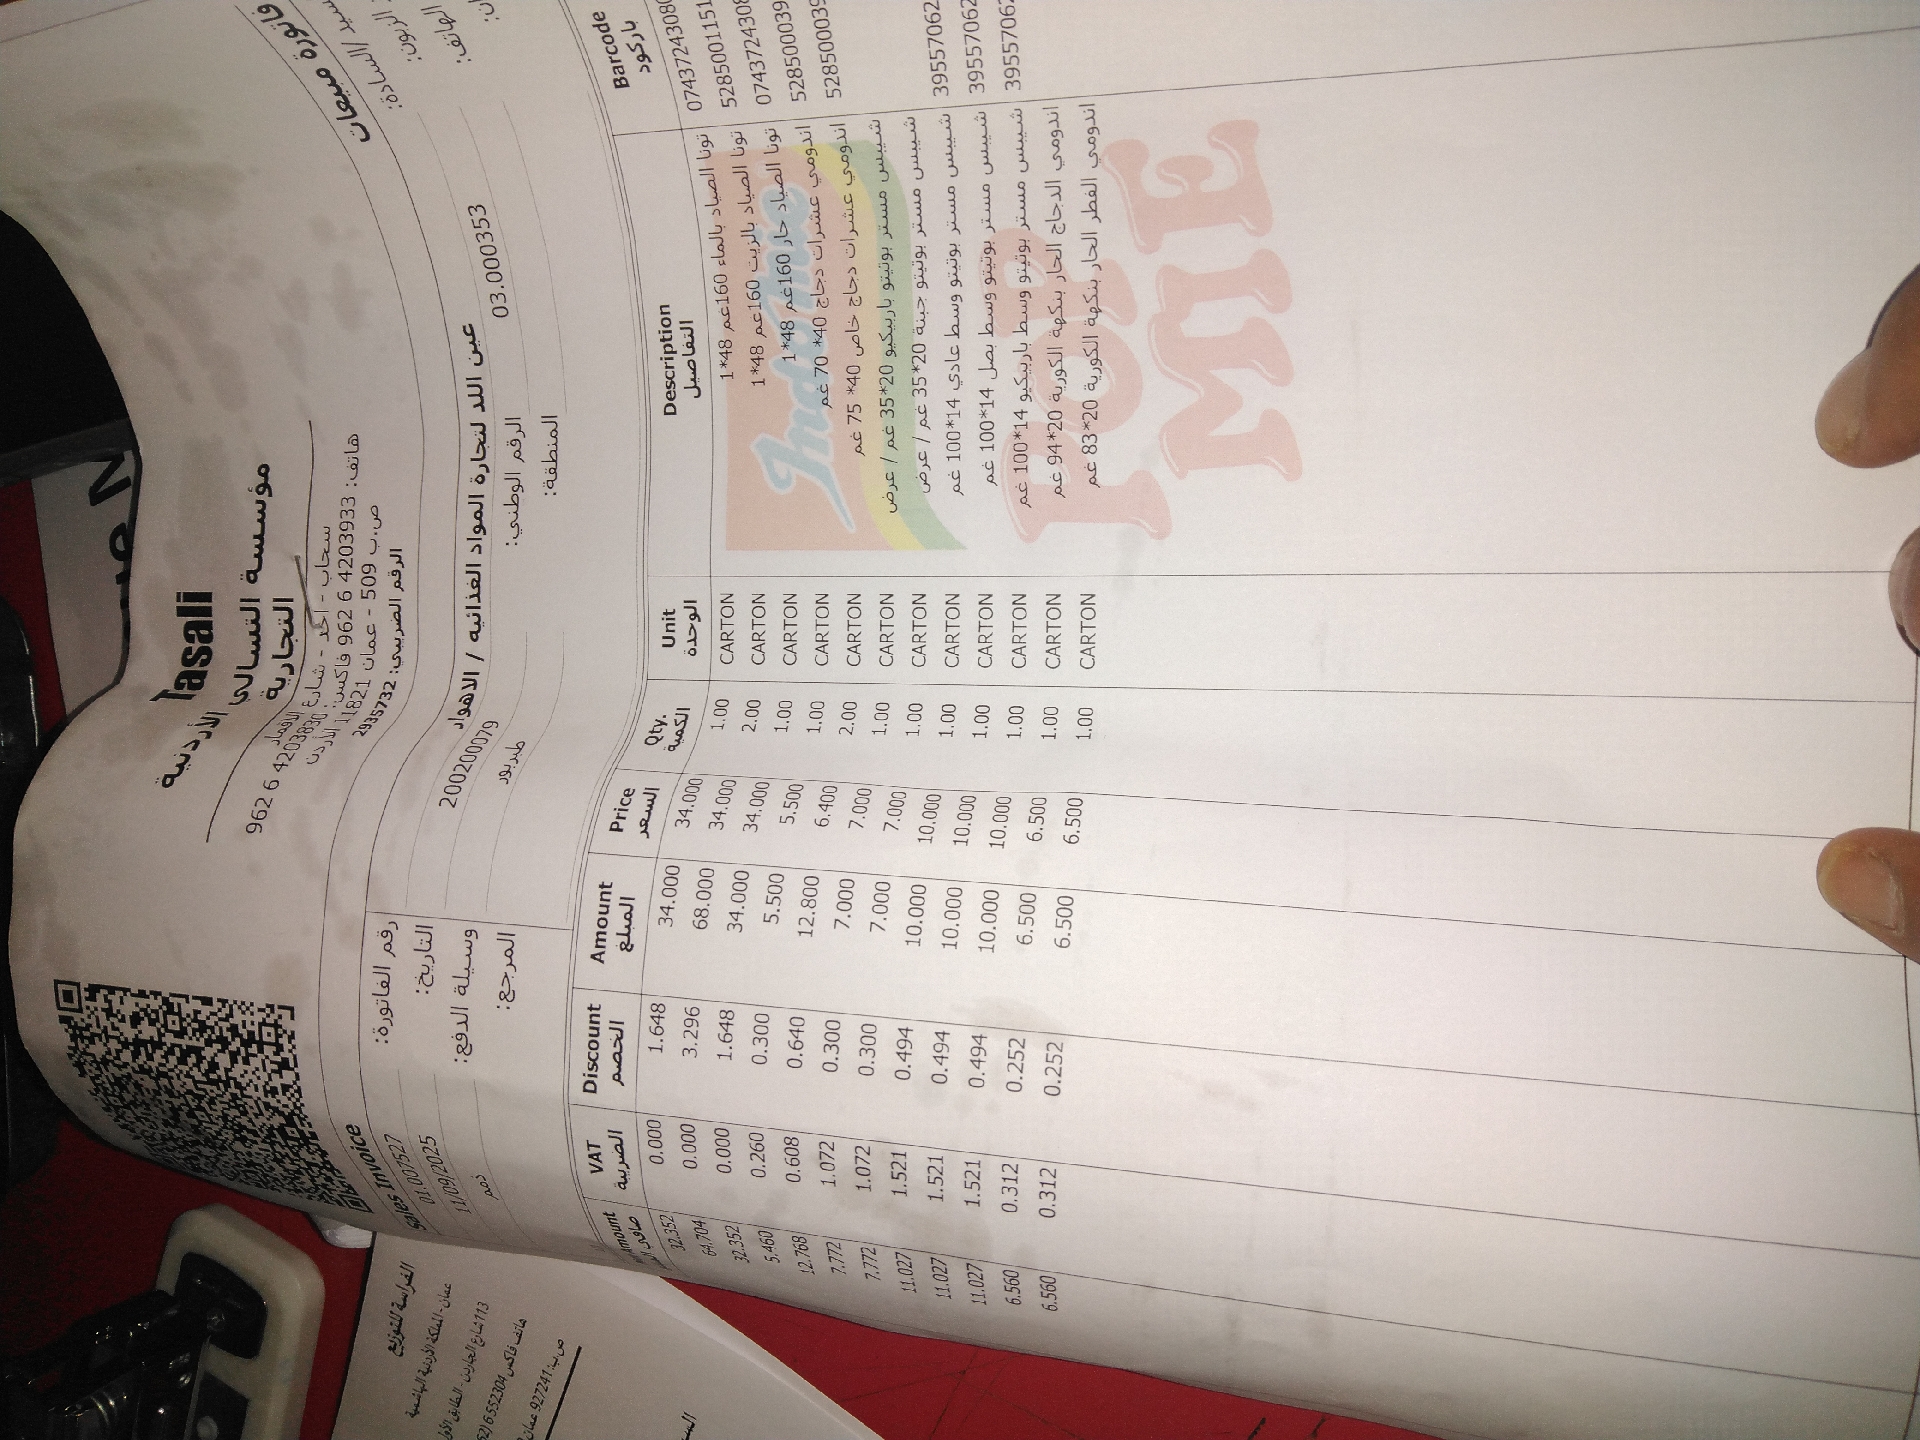 Tasali
مؤسسة التسالي الأردنية
التجارية
سحاب - أحد - شارع
هاتف: 4203933 6 962 فاكس: 4203830 6 962
ص.ب 509 - عمان 11821 الأردن
الرقم الضريبي: 2935732
Sales Invoice
فاتورة مبيعات
رقم الفاتورة: 01.007527
التاريخ: 11/09/2025
وسيلة الدفع: ذمم
المرجع:
السادة:
عين اللد لتجارة المواد الغذائيه / الاهوار
03.000353
الرقم الوطني: 200200079
الهاتف:
المنطقة: طبربور
Barcode Description Unit Qty. Price Amount Discount VAT Amount
باركود التفاصيل الوحدة الكمية السعر المبلغ الخصم الضريبة صافي
07437243080 تونا الصياد بالماء 160غم 48*1 CARTON 1.00 34.000 34.000 1.648 0.000 32.352
5285001151 تونا الصياد بالزيت 160غم 48*1 CARTON 2.00 34.000 68.000 3.296 0.000 64.704
0743724308 تونا الصياد حار 160غم 48*1 CARTON 1.00 34.000 34.000 1.648 0.000 32.352
528500039 اندومي عشرات دجاج 40* 70 غم CARTON 1.00 5.500 5.500 0.300 0.260 5.460
528500039 اندومي عشرات دجاج خاص 40* 75 غم CARTON 2.00 6.400 12.800 0.640 0.608 12.768
شيبس مستر بوتيتو باربيكيو 20*35 غم / عرض CARTON 1.00 7.000 7.000 0.300 1.072 7.772
شيبس مستر بوتيتو جبنة 20*35 غم / عرض CARTON 1.00 7.000 7.000 0.300 1.072 7.772
39557062 شيبس مستر بوتيتو وسط عادي 14*100 غم CARTON 1.00 10.000 10.000 0.494 1.521 11.027
39557062 شيبس مستر بوتيتو وسط بصل 14*100 غم CARTON 1.00 10.000 10.000 0.494 1.521 11.027
39557062 شيبس مستر بوتيتو وسط باربيكيو 14*100 غم CARTON 1.00 10.000 10.000 0.494 1.521 11.027
اندومي الدجاج الحار بنكهة الكورية 20*94 غم CARTON 1.00 6.500 6.500 0.252 0.312 6.560
اندومي الفطر الحار بنكهة الكورية 20*83 غم CARTON 1.00 6.500 6.500 0.252 0.312 6.560
Indomie
POP
MIE
الفراسة للتوزيع
عمان - المملكة الأردنية الهاشمية